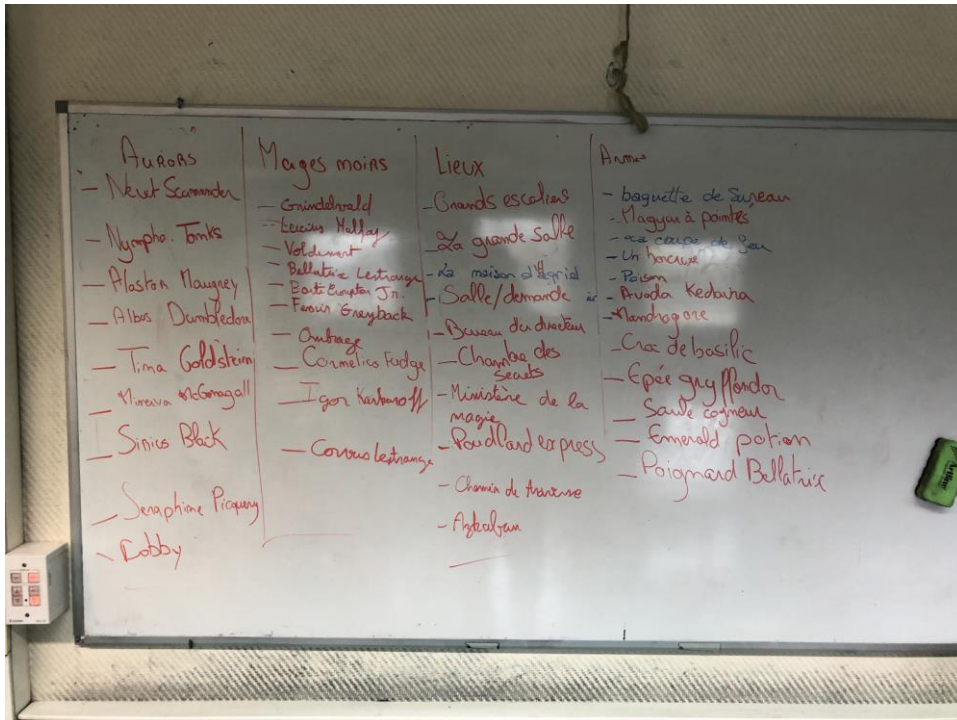 AURORS
- Newt Scamander
- Nympha. Tonks
- Alastor Maugrey
- Albus Dumbledore
- Tina Goldstein
- Minerva McGonagall
- Sirius Black
- Seraphine Picquery
- Dobby
Mages noirs
- Grindelwald
- Lucius Malfoy
- Voldemort
- Bellatrix Lestrange
- Barti Croupton Jr.
- Fenrir Greyback
- Ombrage
- Cornelius Fudge
- Igor Karkaroff
- Corvus Lestrange
Lieux
- Grands escaliers
- La grande Salle
- La maison d'Hagrid
- Salle/demande
- Bureau du directeur
- Chambre des
secrets
- Ministère de la
magie
- Poudlard express
- Chemin de traverse
- Azkaban
Armes
- baguette de Sureau
- Magyar à pointes
- La coupe de feu
- Un horcruxe
- Poison
- Avada Kedavra
- Mandragore
- Croc de basilic
- Epée gryffondor
- Saule cogneur
- Emerald potion
- Poignard Bellatrix